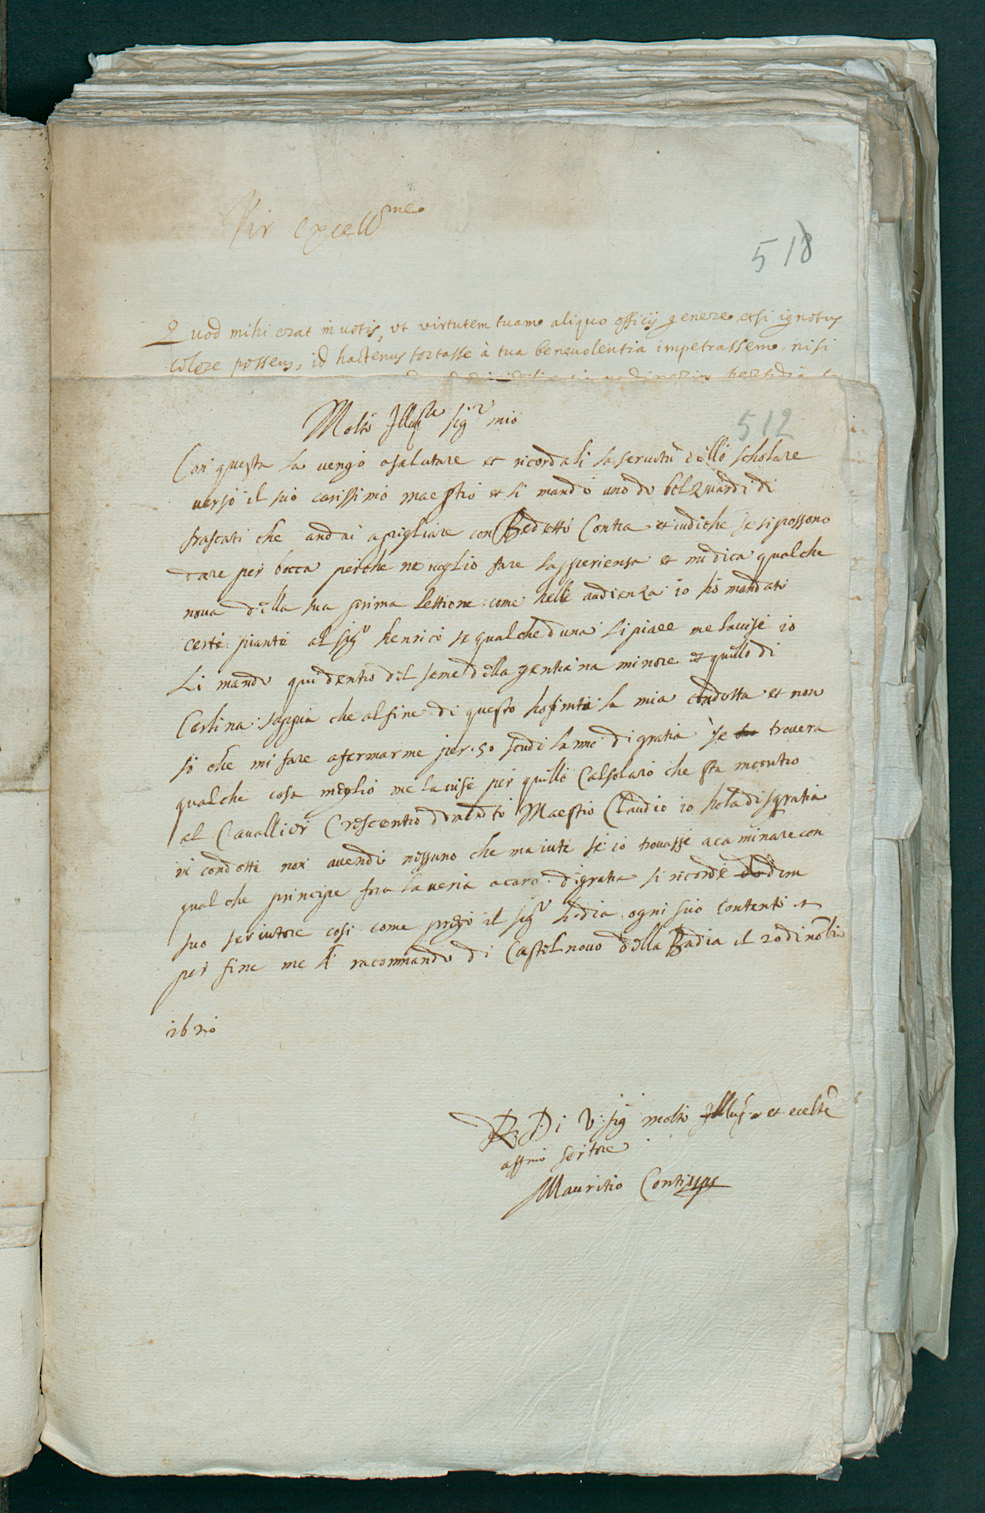 Vir excell.me
518
Quod mihi erat in votis, vt virtutem tuam aliquo officij genere, etsi ignotus
colere possem, id hactenus fortasse à tua beneuolentia impetrassem, nisi
512
Molto Ill.re sig.r mio
Con questa la vengo asalutare et ricordali la servitù dello scholare
verso il suo carissimo maestro et li mando uno de bel
frascati che andai apigliare con Bedetto Contra et mi diche se si possono
dare per bocca perche ne voglio fare la sperienza et mi dica qualche
nova della sua prima lettione come nelle audienza io hò mandati
certe piante al sig.r henrico se qualched'una li piace me lavise io
Li mando qui dentro del seme della gentiana minore et quello di
Carlina: sappia che al fine di questo hofinite la mia condotta et non
sò che mi fare afermarme per .50 scudi lanno di gratia se trovera
qualche cosa meglio me lavise per quello Calsolaro che sta incontro
al Cavallier Crescentio Maestro Claudio io hola disgratia
in condotte non avendo nissuno che maiute se io trovasse acaminare con
qualche principe fora laveria acaro. digratia si ricorde dun
suo servitore cosi come prego il sig.r li dia ogni suo contento et
per fine me li racommando di Castelnovo della Badia il 20 di nobr
1620
Di V. sig. molto Illus. et ecelte
affmo servitore
Mauritio Conti